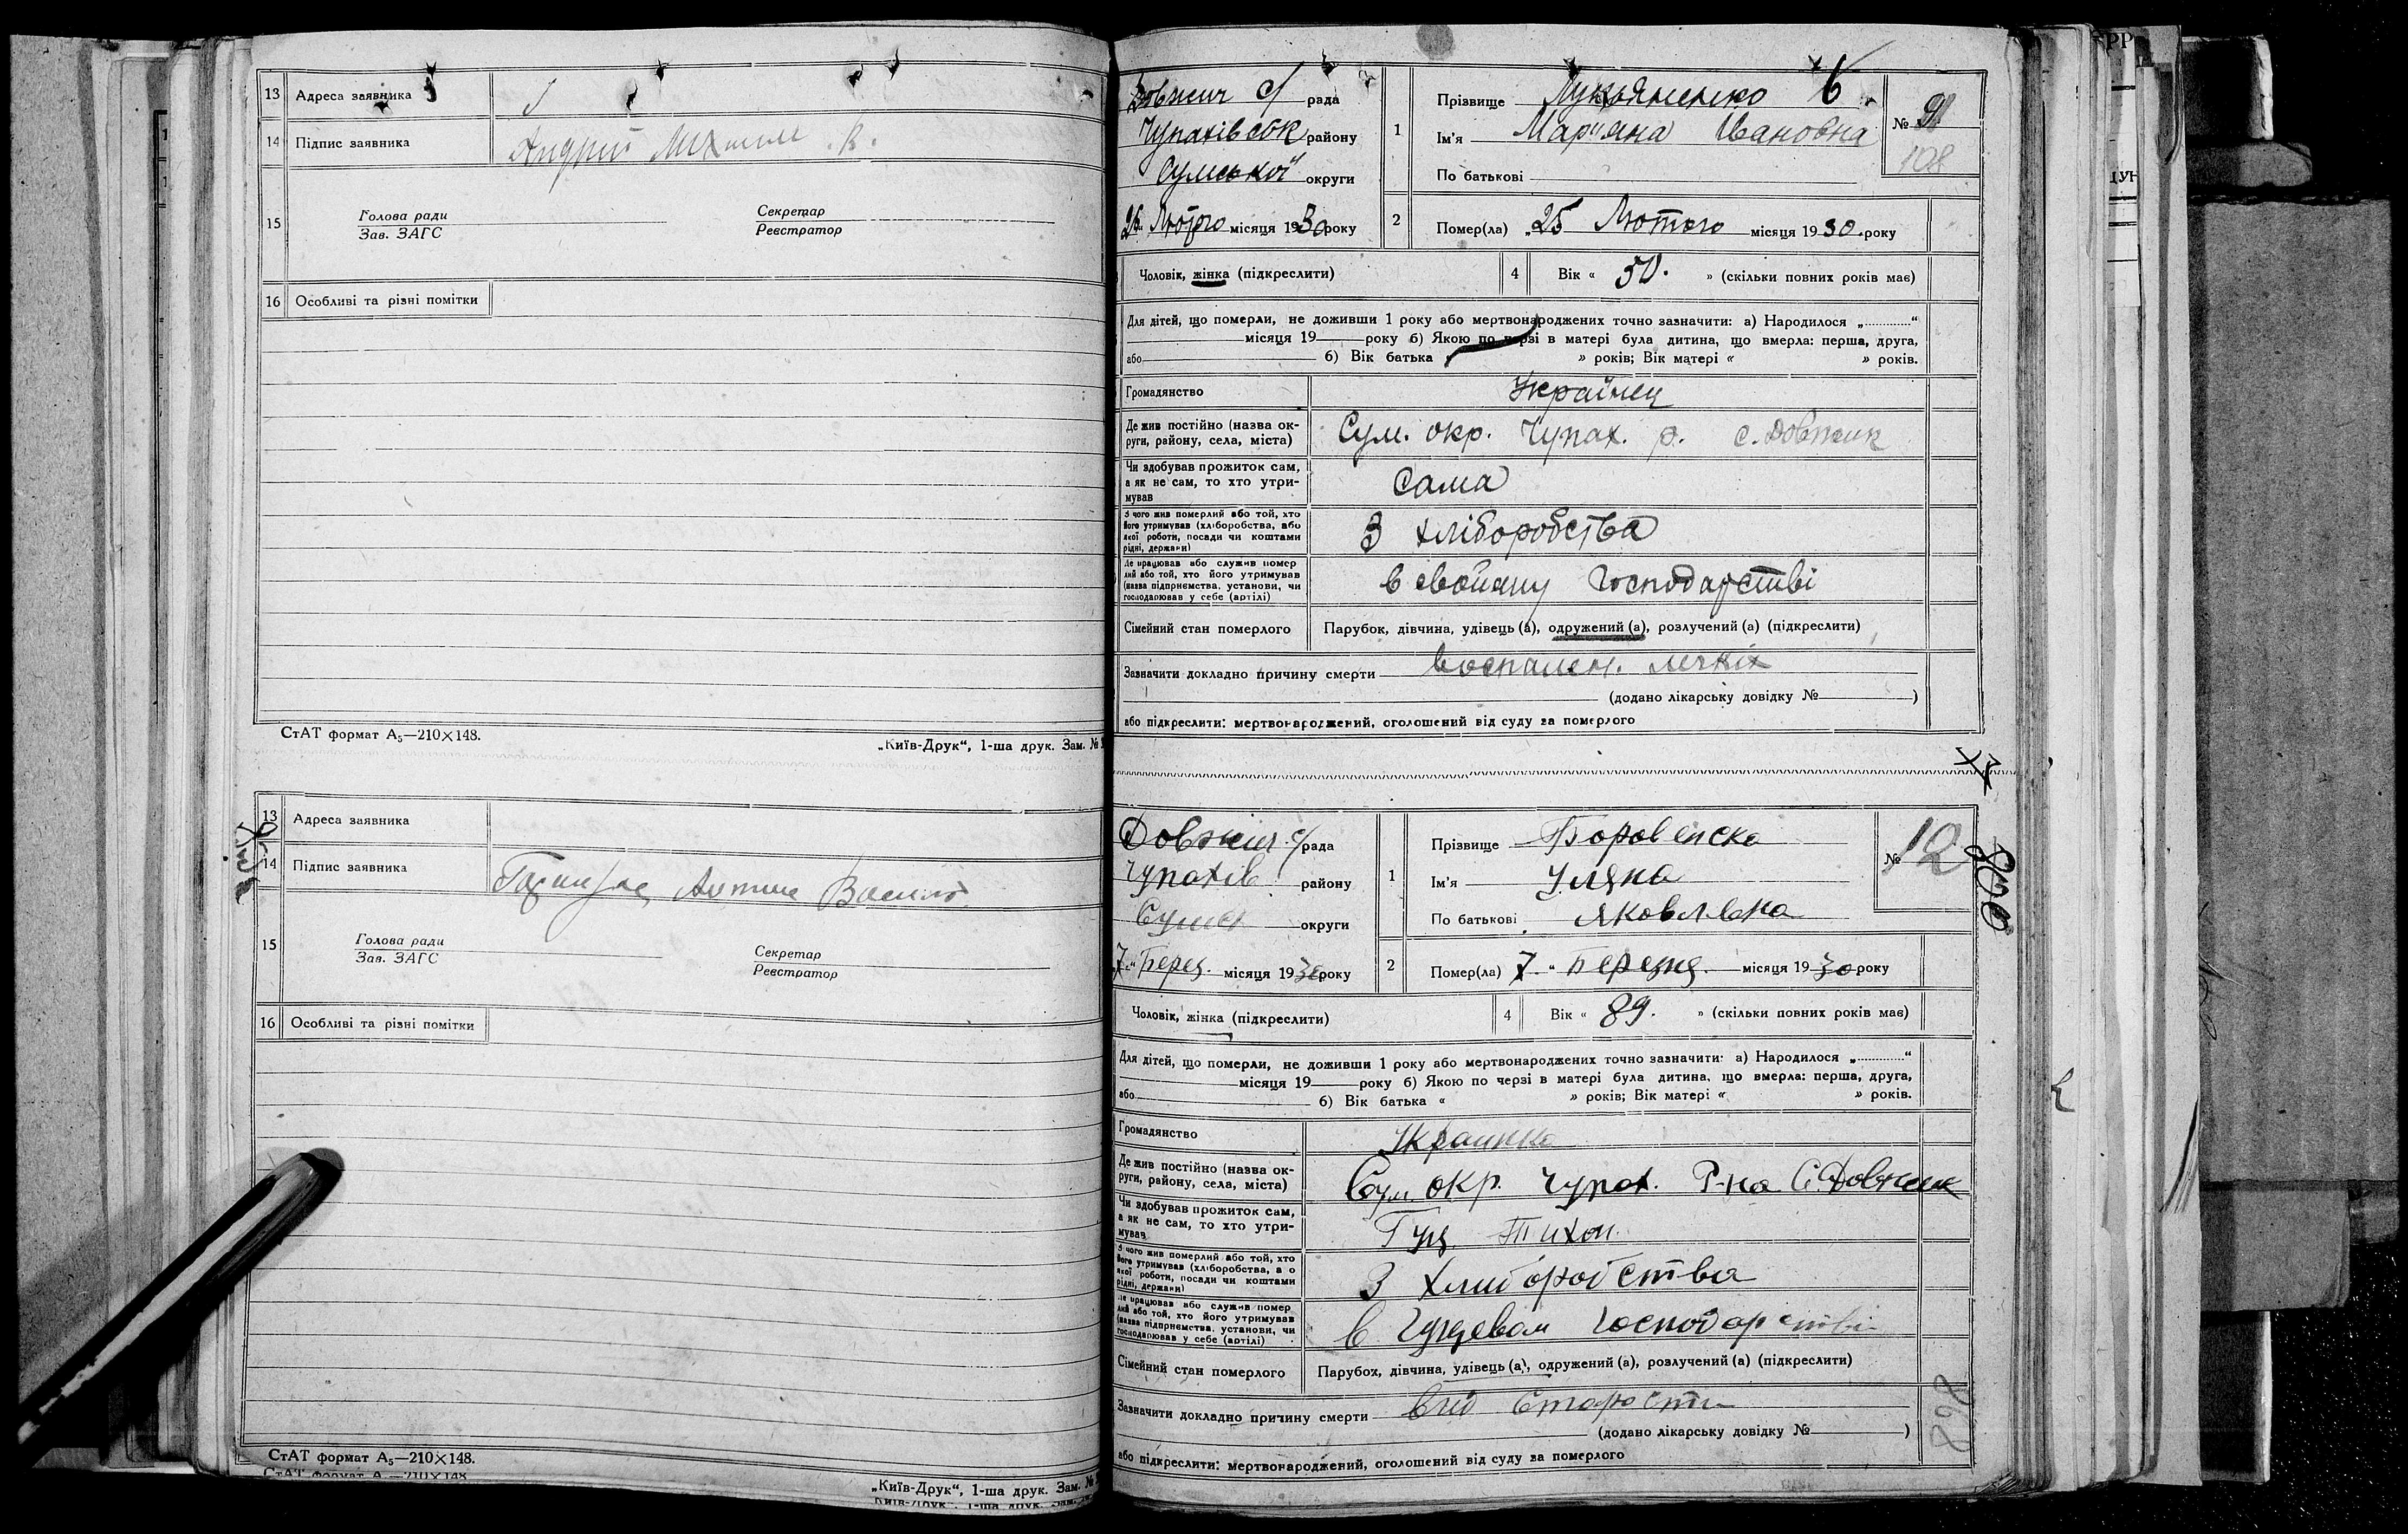 13 Адреса заявника
14 Підпис заявника Андрій
15 Голова ради Секретар
Зав. ЗАГС Реєстратор
16 Особливі та різні помітки
СтАТ формат А₅—210×148.
„Київ-Друк“, 1-ша друк. Зам. №
13 Адреса заявника
14 Підпис заявника
15 Голова ради Секретар
Зав. ЗАГС Реєстратор
16 Особливі та різні помітки
СтАТ формат А₅—210×148.
„Київ-Друк“, 1-ша друк. Зам. №
Довжич с/рада
Чупахівськ району
Сумської округи
26 Лютого місяця 1930 року
1 Прізвище Лукьяненко
Ім'я Мар'яна Івановна
По батькові
№ 91
108
2 Помер(ла) „25 Лютого місяця 1930 року
Чоловік, жінка (підкреслити)
4 Вік « 50. » (скільки повних років має)
Для дітей, що померли, не доживши 1 року або мертвонароджених точно зазначити: а) Народилося „............“
місяця 19 року б) Якою по черзі в матері була дитина, що вмерла: перша, друга,
або б) Вік батька » років; Вік матері « » років.
Громадянство Українец
Де жив постійно (назва ок-
руги, району, села, міста) Сум. окр. Чупах. р. с. Довжик
Чи здобував прожиток сам,
а як не сам, то хто утри-
мував Сама
З чого жив померлий або той, хто
його утримував (хліборобства, або
якої роботи, посади чи коштами
рідні, держави) З хліборобства
Де працював або служив помер
лий або той, хто його утримував
(назва підприємства, установи, чи
господарював у себе (артілі) в свойому господарстві
Сімейний стан померлого Парубок, дівчина, удівець (а), одружений (а), розлучений (а) (підкреслити)
Зазначити докладно причину смерти воспален. легких
(додано лікарську довідку № )
або підкреслити: мертвонароджений, оголошений від суду за померлого
Довжич с/рада
Чупахів району
Сумск округи
7 " Берез. місяця 1930 року
1 Прізвище Боровенска
Ім'я Уляна
По батькові Яковлевна
№ 12
2 Помер(ла) 7 " Березня місяця 1930 року
Чоловік, жінка (підкреслити)
4 Вік « 89. » (скільки повних років має)
Для дітей, що померли, не доживши 1 року або мертвонароджених точно зазначити: а) Народилося „............“
місяця 19 року б) Якою по черзі в матері була дитина, що вмерла: перша, друга,
або б) Вік батька « » років; Вік матері « » років.
Громадянство Украинка
Де жив постійно (назва ок-
руги, району, села, міста) Сум. окр. Чупах. Р-на С. Довжик
Чи здобував прожиток сам,
а як не сам, то хто утри-
мував Гуц Тихон
З чого жив померлий або той, хто
його утримував (хліборобства, а о
якої роботи, посади чи коштами
рідні, держави) З хлиборобства
Де працював або служив помер
лий або той, хто його утримував
(назва підприємства, установи, чи
господарював у себе (артілі) в Гуцевом господарстві
Сімейний стан померлого Парубох, дівчина, удівець (а), одружений (а), розлучений (а) (підкреслити)
Зазначити докладно причину смерти Вид Старости
(додано лікарську довідку № )
або підкреслити: мертвонароджений, оголошений від суду за померлого